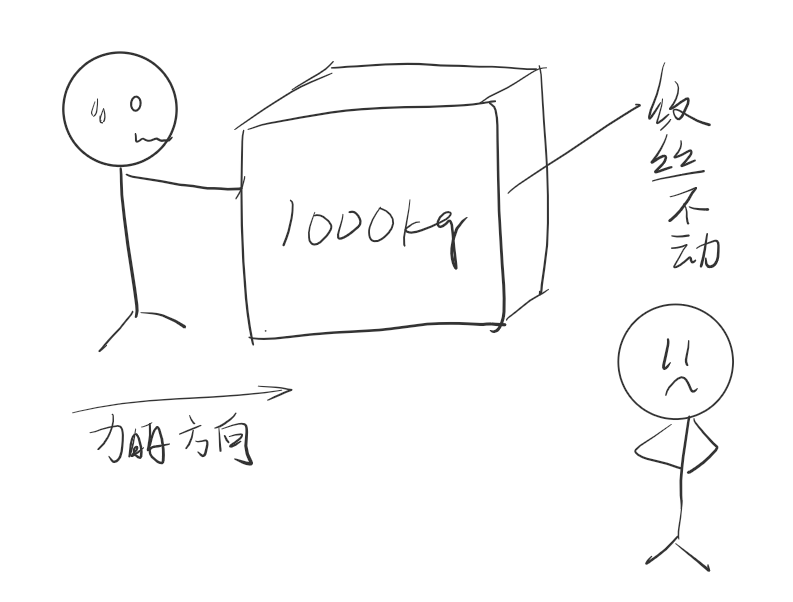 1000kg
纹丝不动
力的方向